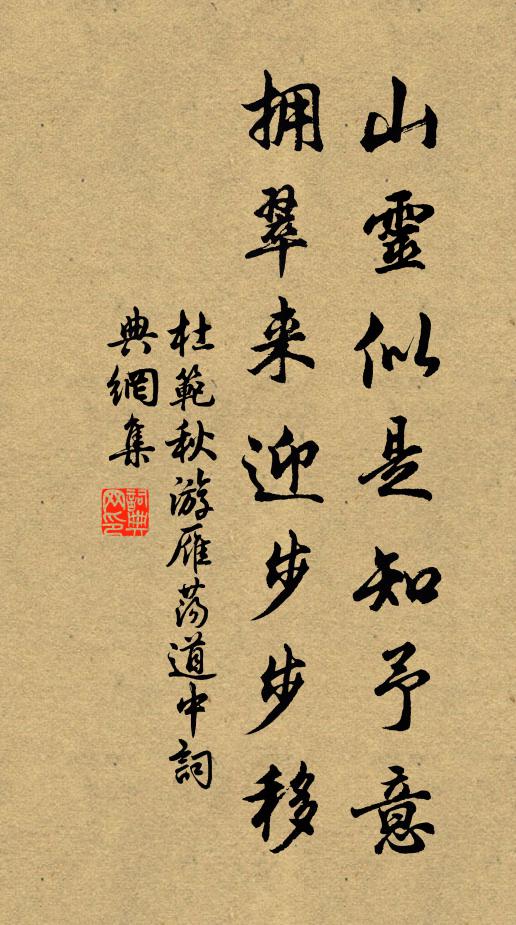 山靈似是知予意
拥翠来迎步步移
杜範秋游雁荡道中詞
典網集
詞典网印